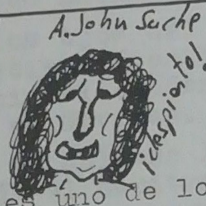 A. John Sache
¡despierto!
es uno de lo